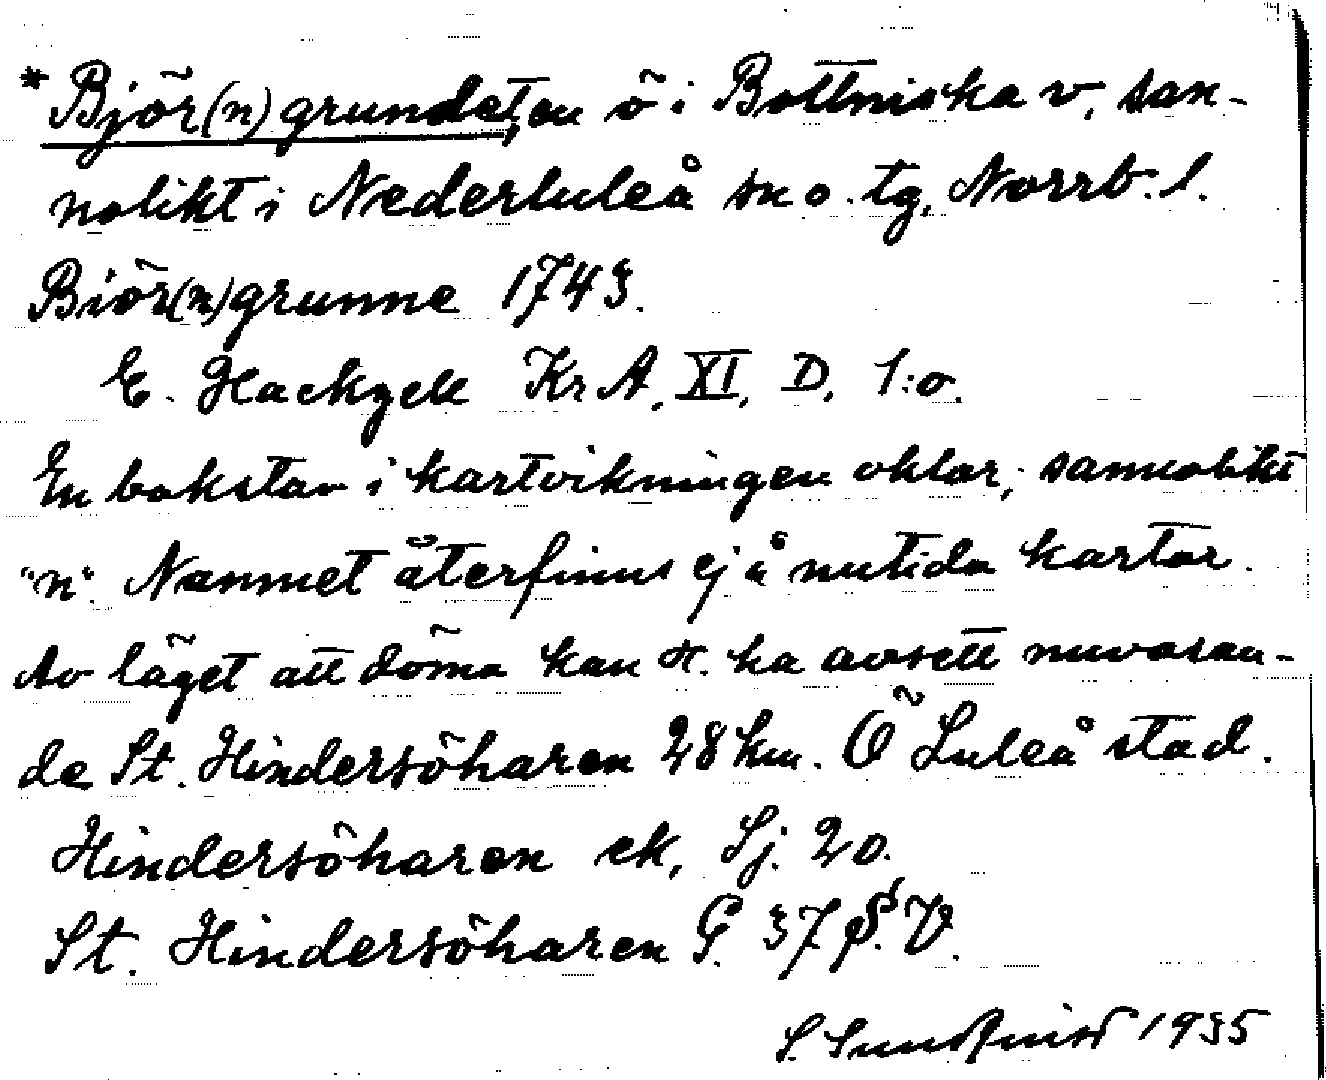 *Björ(n)grundet, en ö i Bottniska v, san-
nolikt i Nederluleå sn o. tg, Norrb. l.
Biör(n)grunne 1743.
E. Hackzell KrA, XI, D, 1:o.
En bokstav i kartvikningen oklar, sannolikt
"n". Namnet återfinns ej å nutida kartor.
Av läget att döma kan ha avsett nuvaran-
de St. Hindersöharen 28 km. Ö Luleå stad.
Hindersöharen ek, Sj. 20.
St. Hindersöharen G. 37
S. Sundqvist 1935